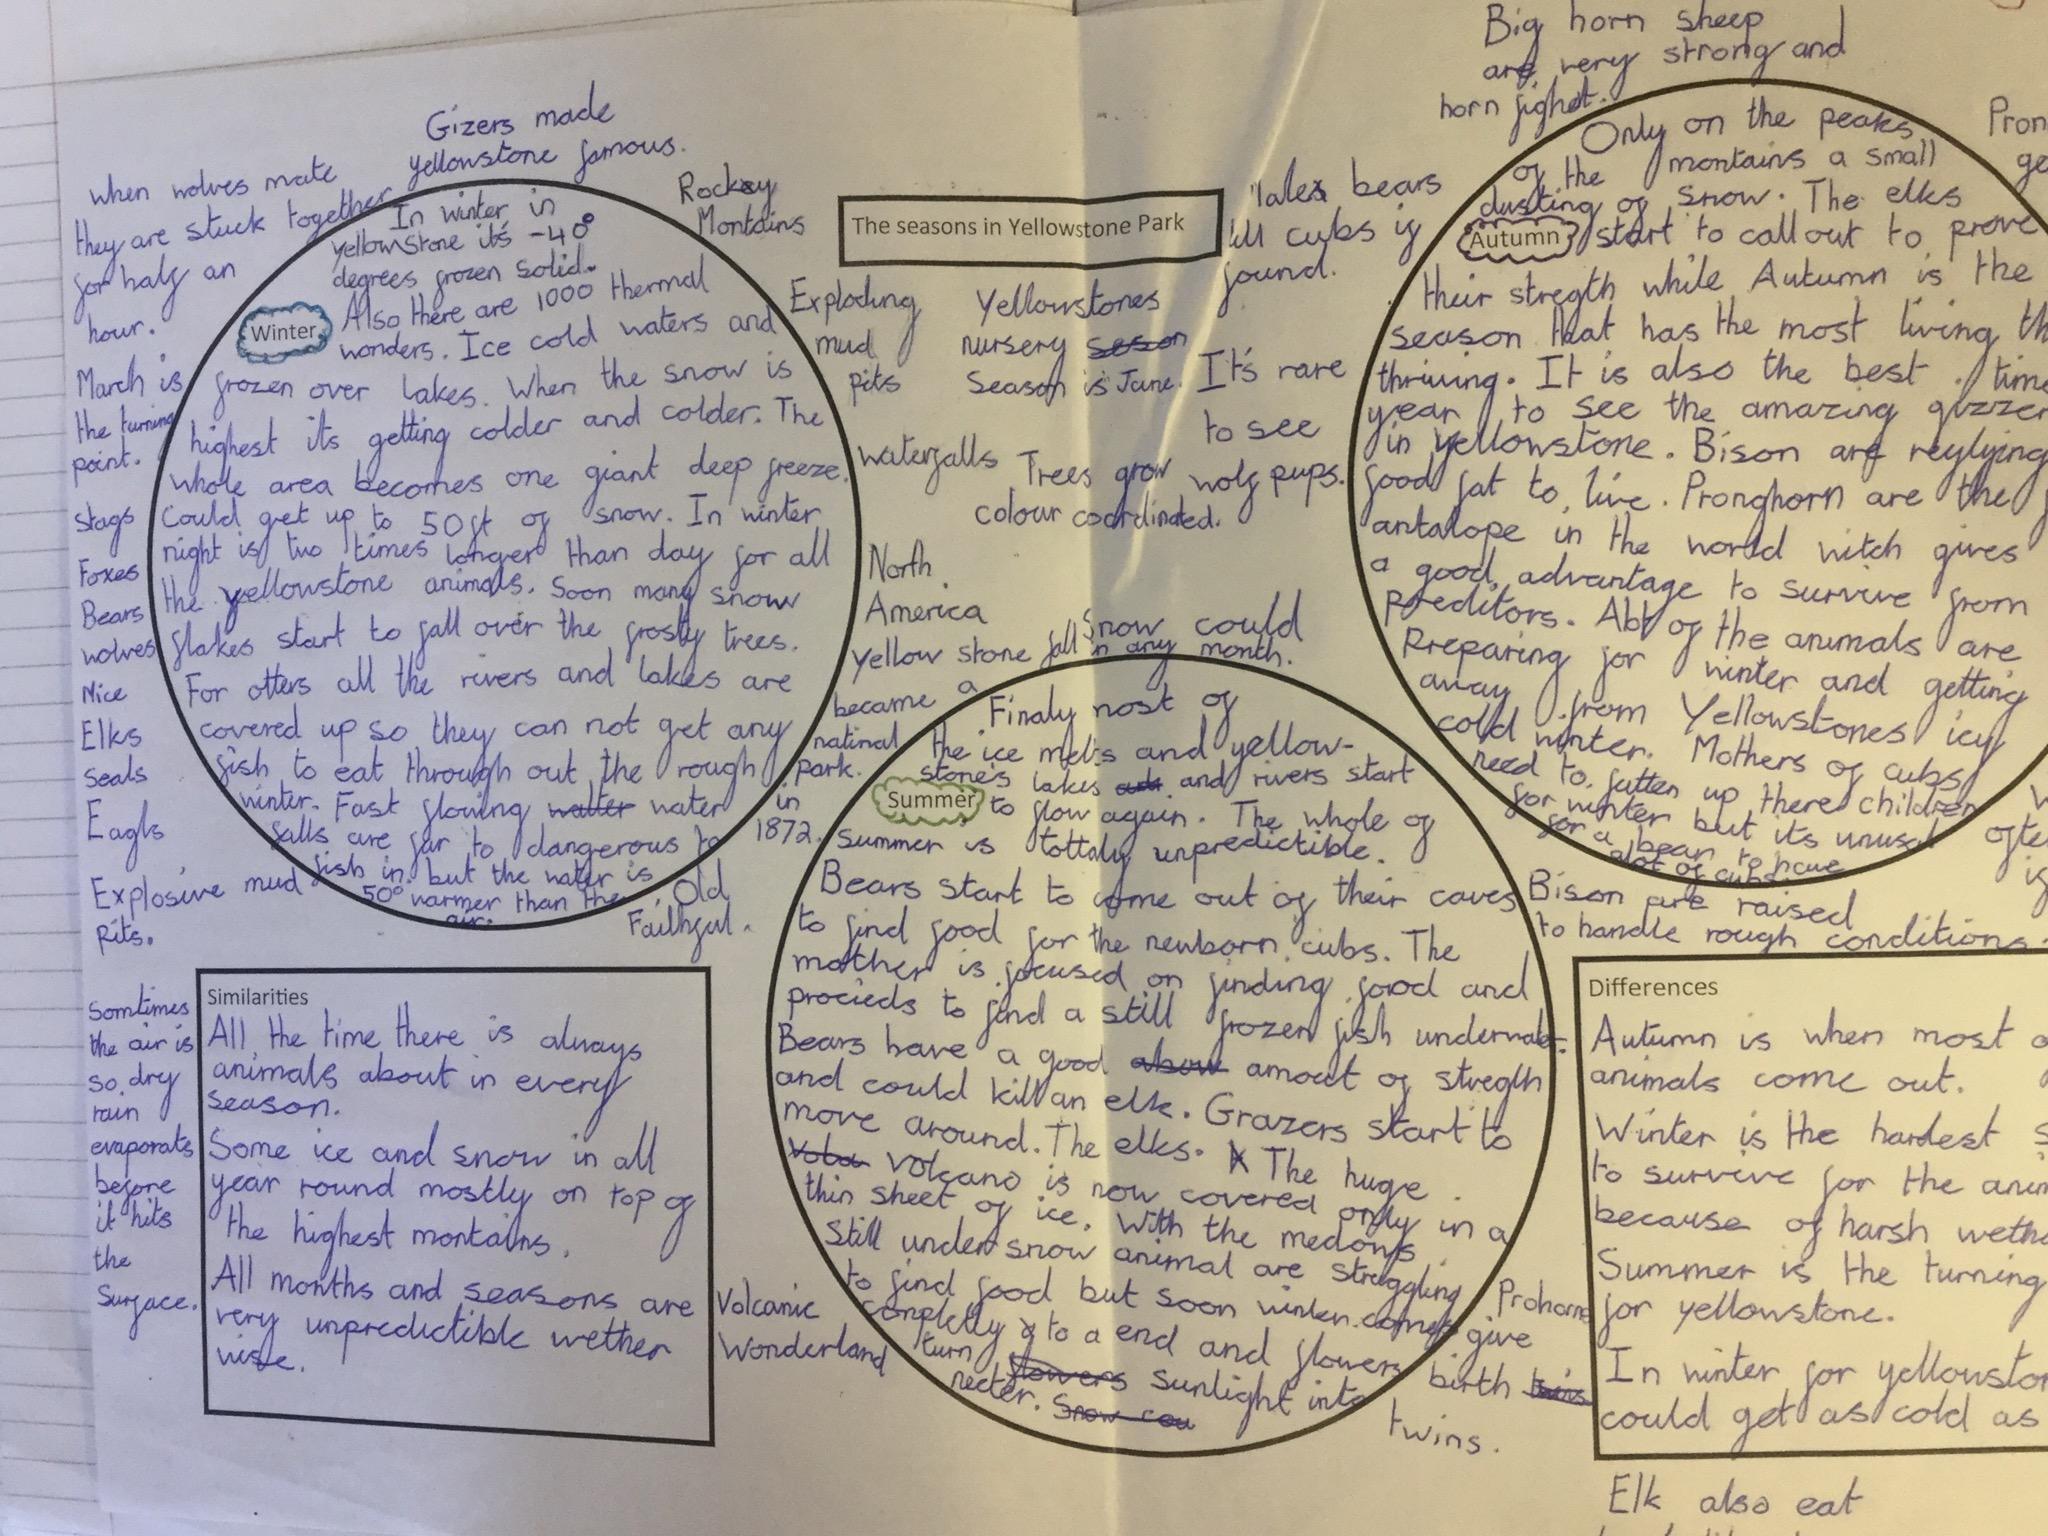 Gizers made
yellowstone famous.
when wolves mate
they are stuck together
for half an
hour.
March is
the turning
point.
Stags
Foxes
Bears
wolves
Mice
Elks
Seals
Eagls
Explosive mud
Pits.
Somtimes
the air is
so dry
rain
evaporats
before
it hits
the
Surface.
In winter in
yellowstone its -40°
degrees frozen solid.
Winter
Also there are 1000 thermal
wonders. Ice cold waters and
frozen over lakes. When the snow is
highest its getting colder and colder. The
whole area becomes one giant deep freeze.
Could get up to 50ft of snow. In winter
night is two times longer than day for all
the yellowstone animals. Soon many snow
flakes start to fall over the frosty trees.
For otters all the rivers and lakes are
covered up so they can not get any
fish to eat through out the rough
winter. Fast flowing walter water
falls are far to dangerous to
fish in. but the water is
50° warmer than the
air.
Rockey
Montains
The seasons in Yellowstone Park
Exploding
mud
pits
Yellowstones
nursery seson
Season is June.
waterfalls
Trees grow
colour coordinated.
It's rare
to see
wolf pups.
Male bears
kill cubs if
found.
North
America
Yellow stone
became a
natinal
park.
in
1872.
Old
Faithful.
Snow could
fall in any month.
Finaly most of
the ice melts and yellow-
stone's lakes and and rivers start
Summer
to flow again. The whole of
summer is tottaly unpredictible.
Bears start to come out of their caves
to find food for the newborn cubs. The
mother is focused on finding food and
procieds to find a still frozen fish underwater.
Bears have a good abow amout of stregth
and could kill an elk. Grazers start to
move around. The elks. The huge
Volca volcano is now covered only in a
thin sheet of ice. With the medows
still under snow animal are struggling
to find food but soon winter comes
conpletly to a end and flowers
turn flowers sunlight into
necter. Snow cou
Volcanic
Wonderland
Prohorns
give
birth twins
twins.
Big horn sheep
are very strong and
horn fighet.
Only on the peaks
of the montains a small
dusting of snow. The elks
Autumn
start to call out to prove
their stregth while Autumn is the
season that has the most living th
thriving. It is also the best time
year to see the amazing gizzer
in yellowstone. Bison are reylying
food fat to live. Pronghorn are the
antalope in the world witch gives
a good advantage to survive from
Preditors. Alot of the animals are
Preparing for winter and getting
away from Yellowstones icy
cold winter. Mothers of cubs
need to fatten up there children
for winter but its unusal
for a bear to have
alot of cubs
Pron
ge
ofte
is
Bison are raised
to handle rough conditions.
Similarities
All the time there is always
animals about in every
season.
Some ice and snow in all
year round mostly on top of
the highest montains.
All months and seasons are
very unpredictible wether
wise.
Differences
Autumn is when most o
animals come out.
Winter is the hardest s
to survive for the anim
because of harsh wethe
Summer is the turning
for yellowstone.
In winter for yellowston
could get as cold as
Elk also eat